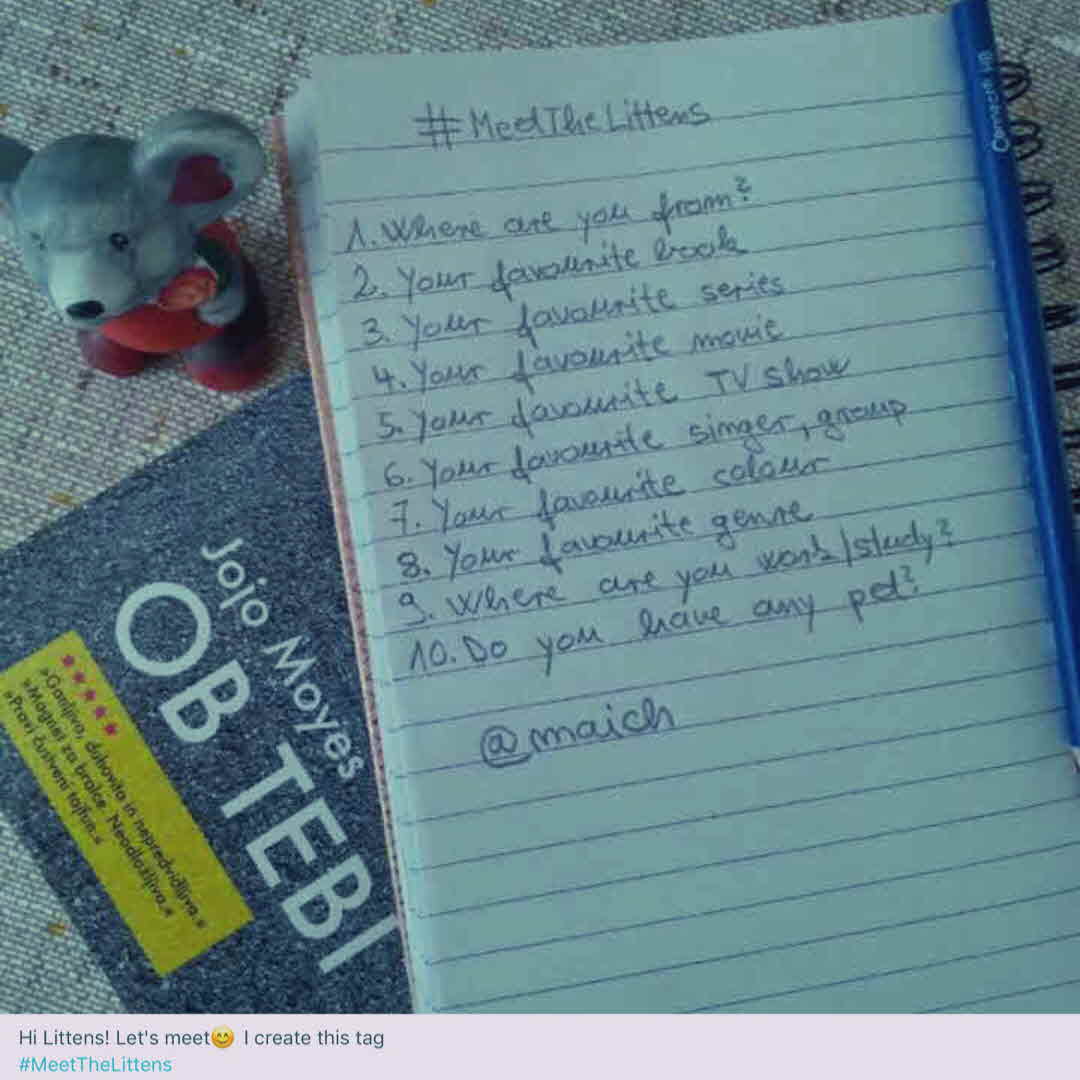 #MeetTheLittens
1. Where are you from?
2. Your favourite book
3. Your favourite series
4. Your favourite movie
5. Your favourite TV show
6. Your favourite singer, group
7. Your favourite colour
8. Your favourite genre
9. Where are you work/study?
10. Do you have any pet?
@maich
Jojo Moyes
OB TEBI
»Ganljivo, duhovito in nepredvidljivo.«
»Pravi čustveni tajfun.«
Hi Littens! Let's meet😊 I create this tag
#MeetTheLittens